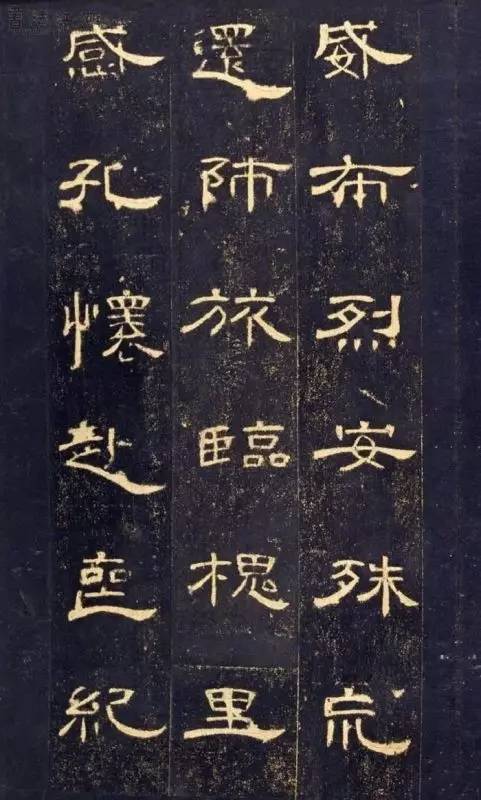 威布烈安殊巟
還師旅臨槐里
感孔懷赴喪紀